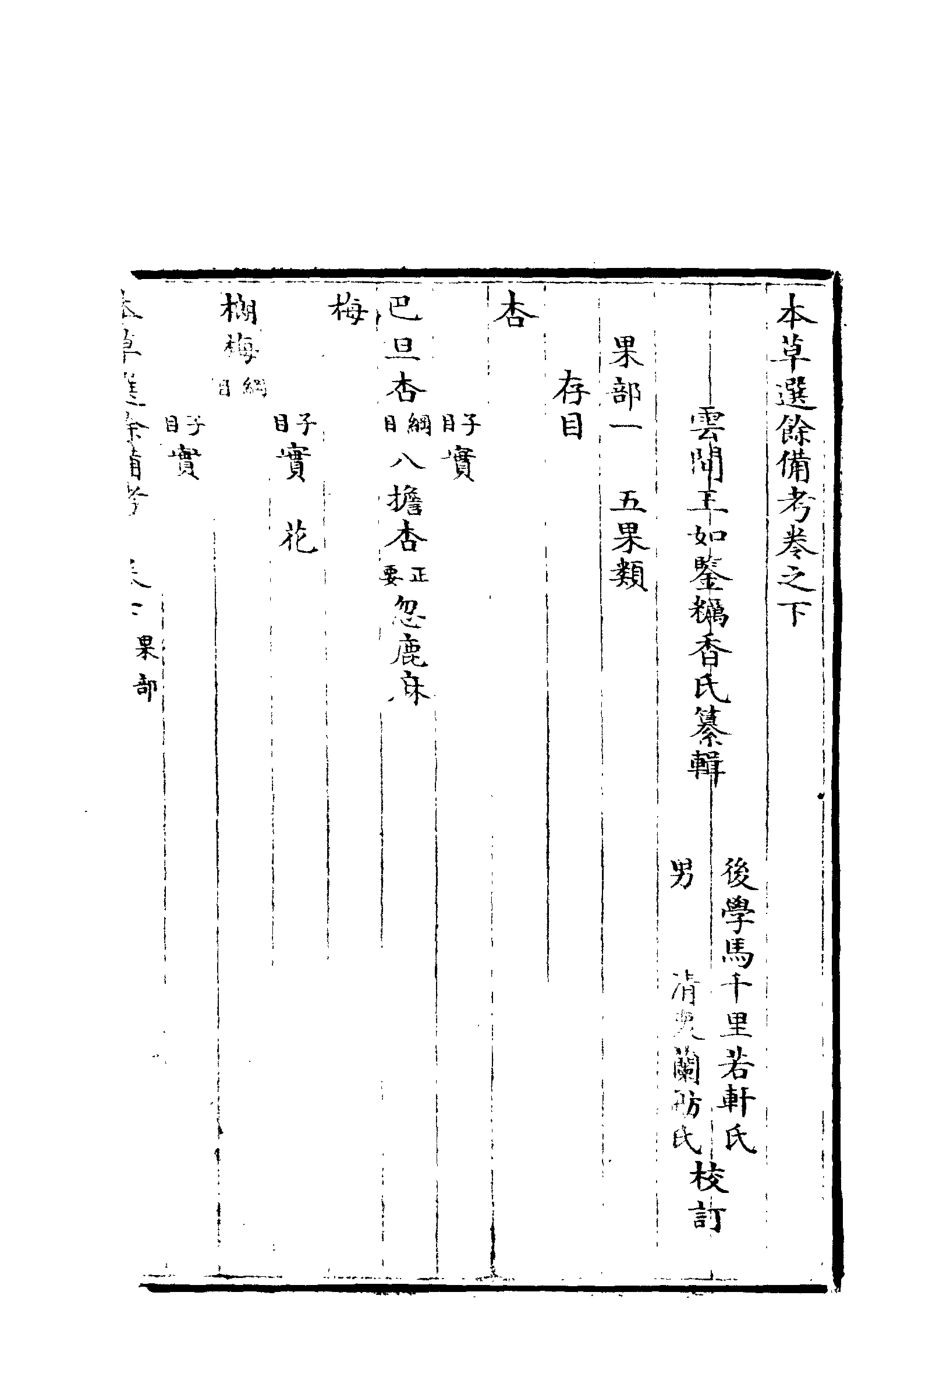 本草選餘備考卷之下
雲間王如鑒穪香氏纂輯
後學馬千里若軒氏
男 清 蘭 氏
校訂
果部一 五果類
存目
杏
子目實
巴旦杏綱目八擔杏正要忽鹿麻
梅
子目實 花
榔梅綱目
子目實
本草選餘備考 果部